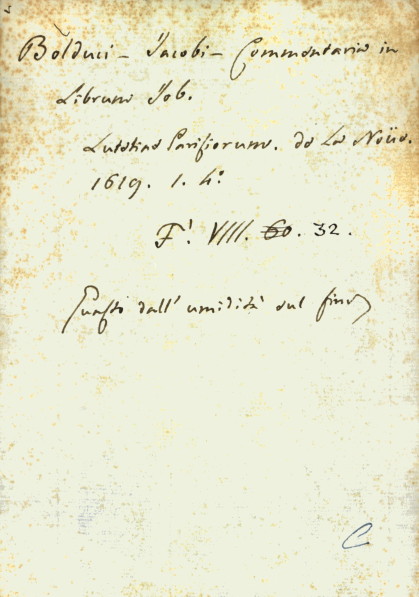 Bolduci - Jacobi - Commentaria in
Librum Job.
Lutetiae Parisiorum. de La Noüe.
1619. 1. 4°
F'. VIII. 60. 32.
Guasto dall' umidità sul fine
C